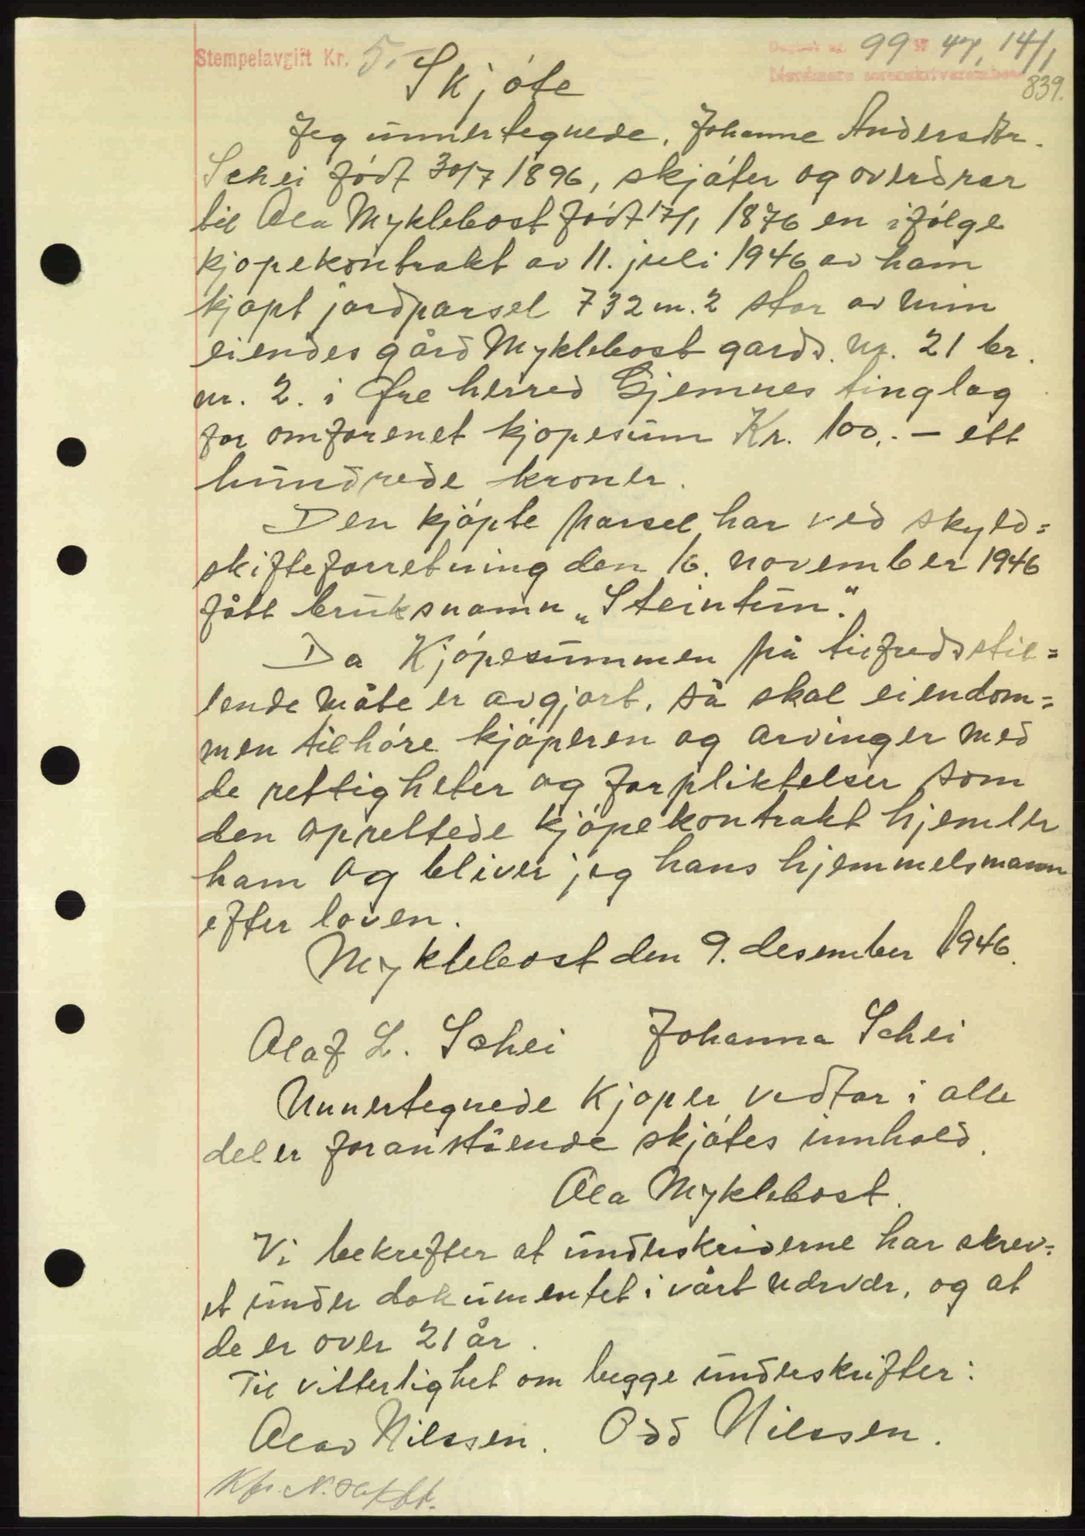 Stempelavgift Kr. 5.- 99 47, 14/1
839.
Skjøte
Jeg unnertegnede, Johanne Andersdtr.
Schei født 30/7 1896, skjøter og overdrar
til Ola Myklebost født 17/1 1876 en ifølge
kjøpekontrakt av 11. juli 1946 av ham
kjøpt jordparsel 732 m.2 stor av min
eiendes gård Myklebost gards. nr. 21 br.
nr. 2. i Øre herred Gjemnes tinglag
for omforenet kjøpesum Kr. 100,. — ett
hundrede kroner.
Den kjøpte parsel har ved skyld=
skifteforretning den 16. november 1946
fått bruksnamn „Steintun".
Da Kjøpesummen på tilfredsstil=
lende måte er avgjort, så skal eiendom=
men tilhøre kjøperen og arvinger med
de rettigheter og forpliktelser som
den oprettede kjøpekontrakt hjemler
ham og bliver jeg hans hjemmelsmann
efter loven.
Myklebost den 9. desember 1946.
Olaf L. Schei Johanna Schei
Unnertegnede Kjøper vedtar i alle
deler foranstående skjøtes innhold.
Ola Myklebost.
Vi bekrefter at underskriverne har skrev=
et under dokumentet i vårt nærvær, og at
de er over 21 år.
Til vitterlighet om begge underskrifter:
Olav Nilssen. Odd Nilssen.